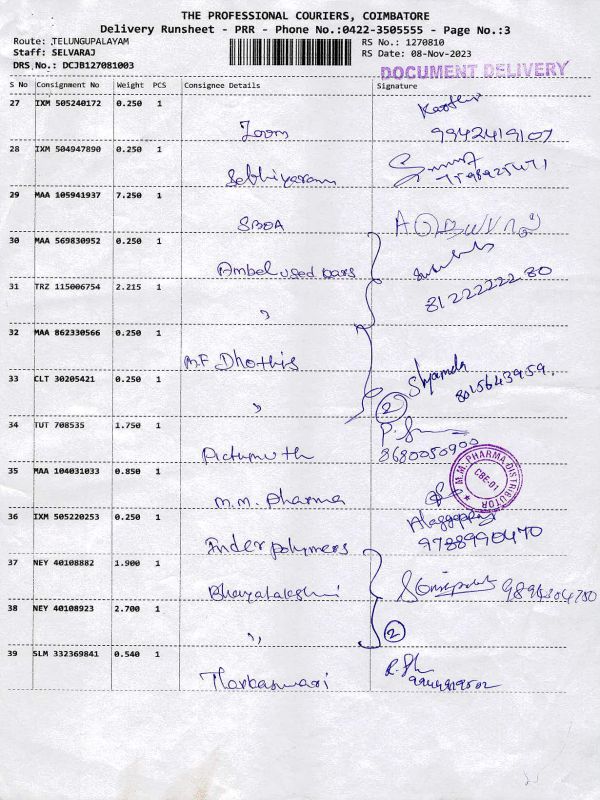 THE PROFESSIONAL COURIERS, COIMBATORE
Delivery Runsheet - PRR - Phone No.:0422-3505555 - Page No.:3
Route: .TELUNGUPALAYAM RS No.: 1270810
Staff: SELVARAJ RS Date: 08-Nov-2023
DRS.No.: DCJB127081003
DOCUMENT DELIVERY
S No Consignment No Weight PCS Consignee Details Signature
27 IXM 505240172 0.250 1
Zoom 9942419107
28 IXM 504947890 0.250 1
29 MAA 105941937 7.250 1
SBOA
30 MAA 569830952 0.250 1
Ambel used cars
31 TRZ 115006754 2.215 1 8122222280
"
32 MAA 862330566 0.250 1
M.F Dhothis
33 CLT 30205421 0.250 1 Shyamala 8015643959.
" 2
34 TUT 708535 1.750 1
Pictumuth 8680050900
35 MAA 104031033 0.850 1
M.M. Pharma
M.M. PHARMA DISTRIBUTOR
CBE-01
36 IXM 505220253 0.250 1
Inder polymers 9788990470
37 NEY 40108882 1.900 1
Bhagyalakshmi 9894304750
38 NEY 40108923 2.700 1
" 2
39 SLM 332369841 0.540 1